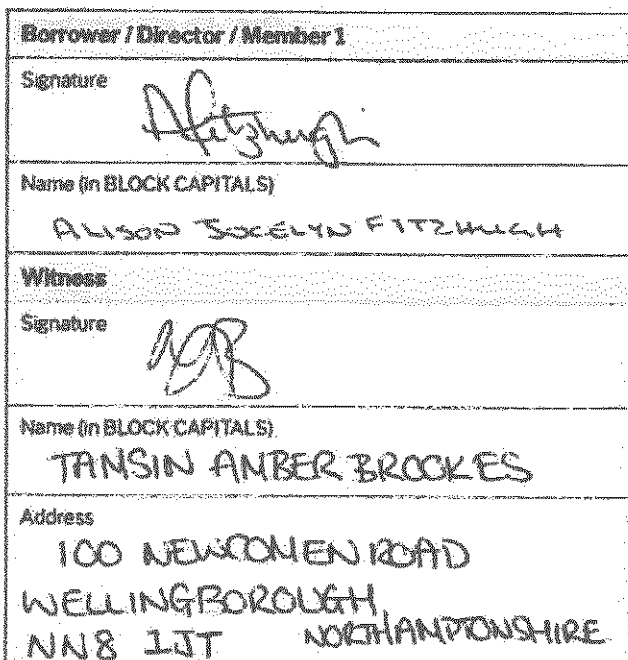 Borrower / Director / Member 1
Signature
Afitzhugh
Name (in BLOCK CAPITALS)
ALISON JOCELYN FITZHUGH
Witness
Signature
Name (in BLOCK CAPITALS)
TAMSIN AMBER BROOKES
Address
100 NEWCOMEN ROAD
WELLINGBOROUGH
NN8 1JT NORTHAMPTONSHIRE